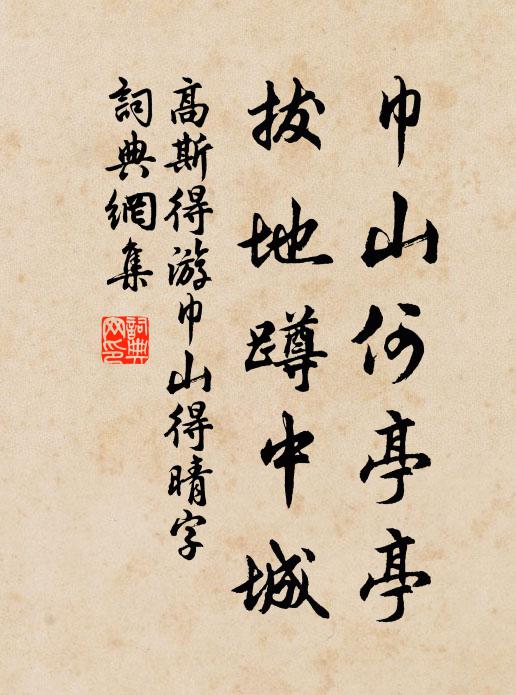 巾山何亭亭
拔地蹲中城
高斯得游巾山得晴字
詞典網集
詞典网印